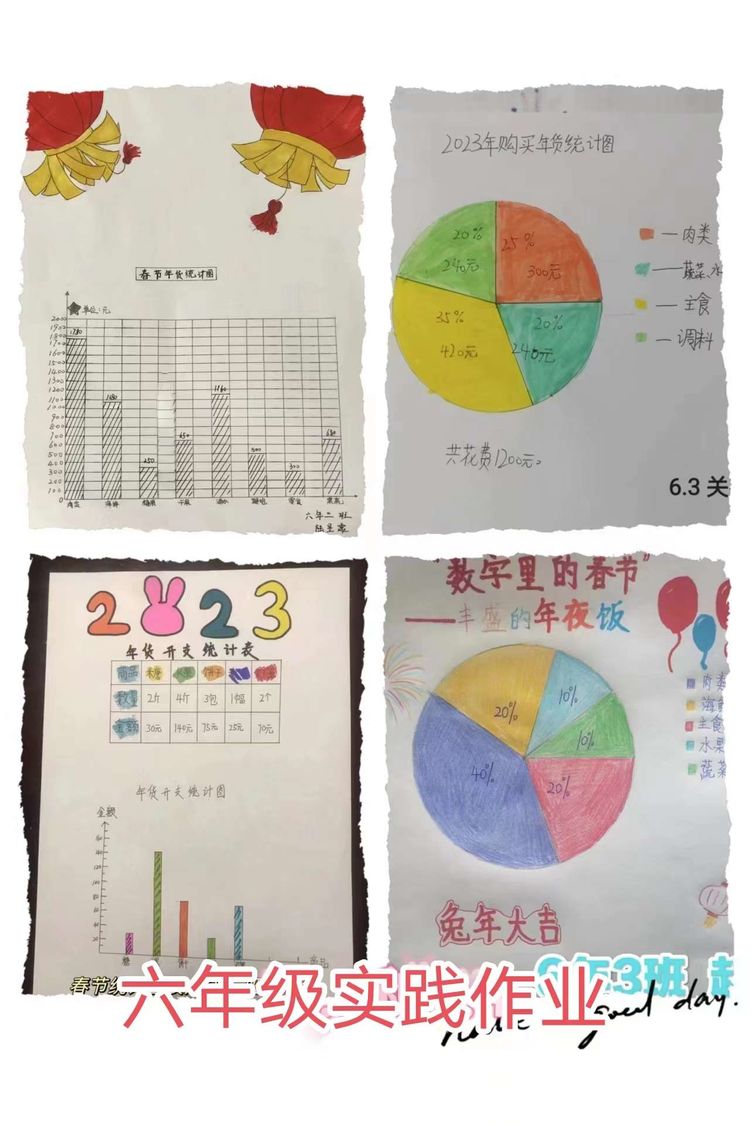 春节年货统计图
单位:元
2000
1900
1800
1700
1600
1500
1400
1300
1200
1100
1000
900
800
700
600
500
400
300
200
100
0
1780
1080
350
650
1160
500
300
680
六年二班
2023年购买年货统计图
20%
240元
25%
300元
35%
420元
20%
240元
肉类
蔬菜、水
主食
调料
共花费1200元。
6.3 关
2 23
年货开支统计表
商品 糖 水果 饼干
数量 2斤 4斤 3包 1幅 2个
金额 30元 140元 75元 25元 70元
年货开支统计图
金额
糖
商品
春节统
"数字里的春节"
——丰盛的年夜饭
20%
10%
10%
40%
20%
肉类
海鲜
主食
水果
蔬菜
兔年大吉
六年级实践作业
3班
good day.